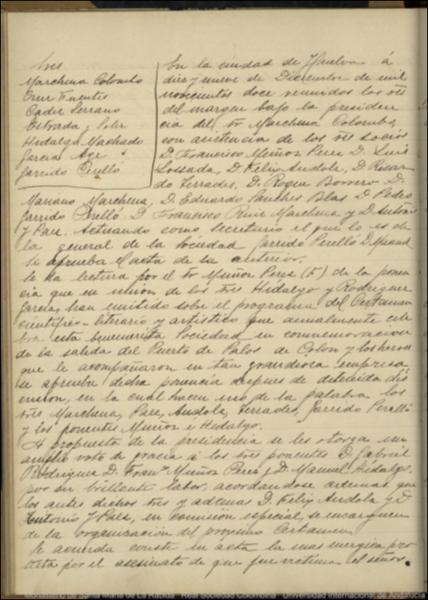 Sres
Marchena Colombo
Cruz Fuentes
Cadiz Serrano
Estrada y Soler
Hidalgo Machado
Garcia
Garrido Perelló
En la ciudad de Huelva á
diez y nueve de Diciembre de mil
novecientos doce reunidos los sres
del margen bajo la presiden
cia del Sr Marchena Colombo,
con asistencia de los sres socios
D. Francisco Muñoz Perez D. Luis
Lossada, D. Felix Andolz, D. Ricar
do Terrades, D. Roque Borrero D.
Mariano Marchena, D. Eduardo Sanches Blas D. Pedro
Garrido Perelló D. Francisco Ruiz Marchena y D. Antonio
y Paez. Actuando como secretario el que lo es de
la general de la Sociedad Garrido Perelló D. Manuel
Se aprueba l'acta de la anterior.
Se da lectura por el Sr Muñoz Perez (F) de la ponen
cia que en union de los sres Hidalgo y Rodriguez
Garcia, han emitido sobre el programa del Certamen
cientifico-literario y artístico que anualmente cele
bra esta benemérita Sociedad en conmemoracion
de la salida del Puerto de Palos de Colon y los heroes
que le acompañaron en tan grandiosa empresa,
se aprueba dicha ponencia despues de detenida dis
cusion, en la cual hacen uso de la palabra los
sres Marchena, Paez, Andolz, Terrades, Garrido Perelló
y los ponentes Muñoz é Hidalgo.
A propuesta de la presidencia se les otorga un
amplio voto de gracia á los tres ponentes D. Gabriel
Rodriguez D. Franco Muñoz Perez y D. Manuel Hidalgo,
por su brillante labor, acordandose ademas que
los antes dichos sres y ademas D. Felix Andolz y D.
Antonio y Paez, en comision especial, se encarguen
de la organización del proximo Certamen.
Se acuerda conste en acta la mas energica pro
testa por el asesinato de que fue victima el señor